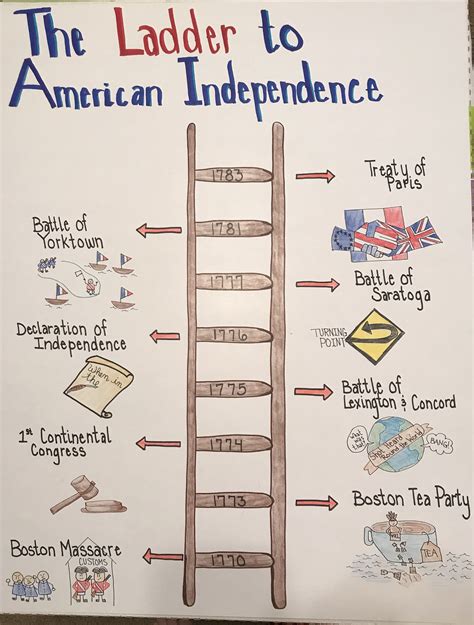 The Ladder to
American Independence
1783
Treaty of
Paris
1781
Battle of
Yorktown
1777
Battle of
Saratoga
TURNING
POINT
1776
Declaration of
Independence
When in
the
1775
Battle of
Lexington & Concord
What was that?
BANG!
Shot Heard
'Round the World
1774
1st Continental
Congress
1773
Boston Tea Party
TEA
1770
Boston Massacre
CUSTOMS